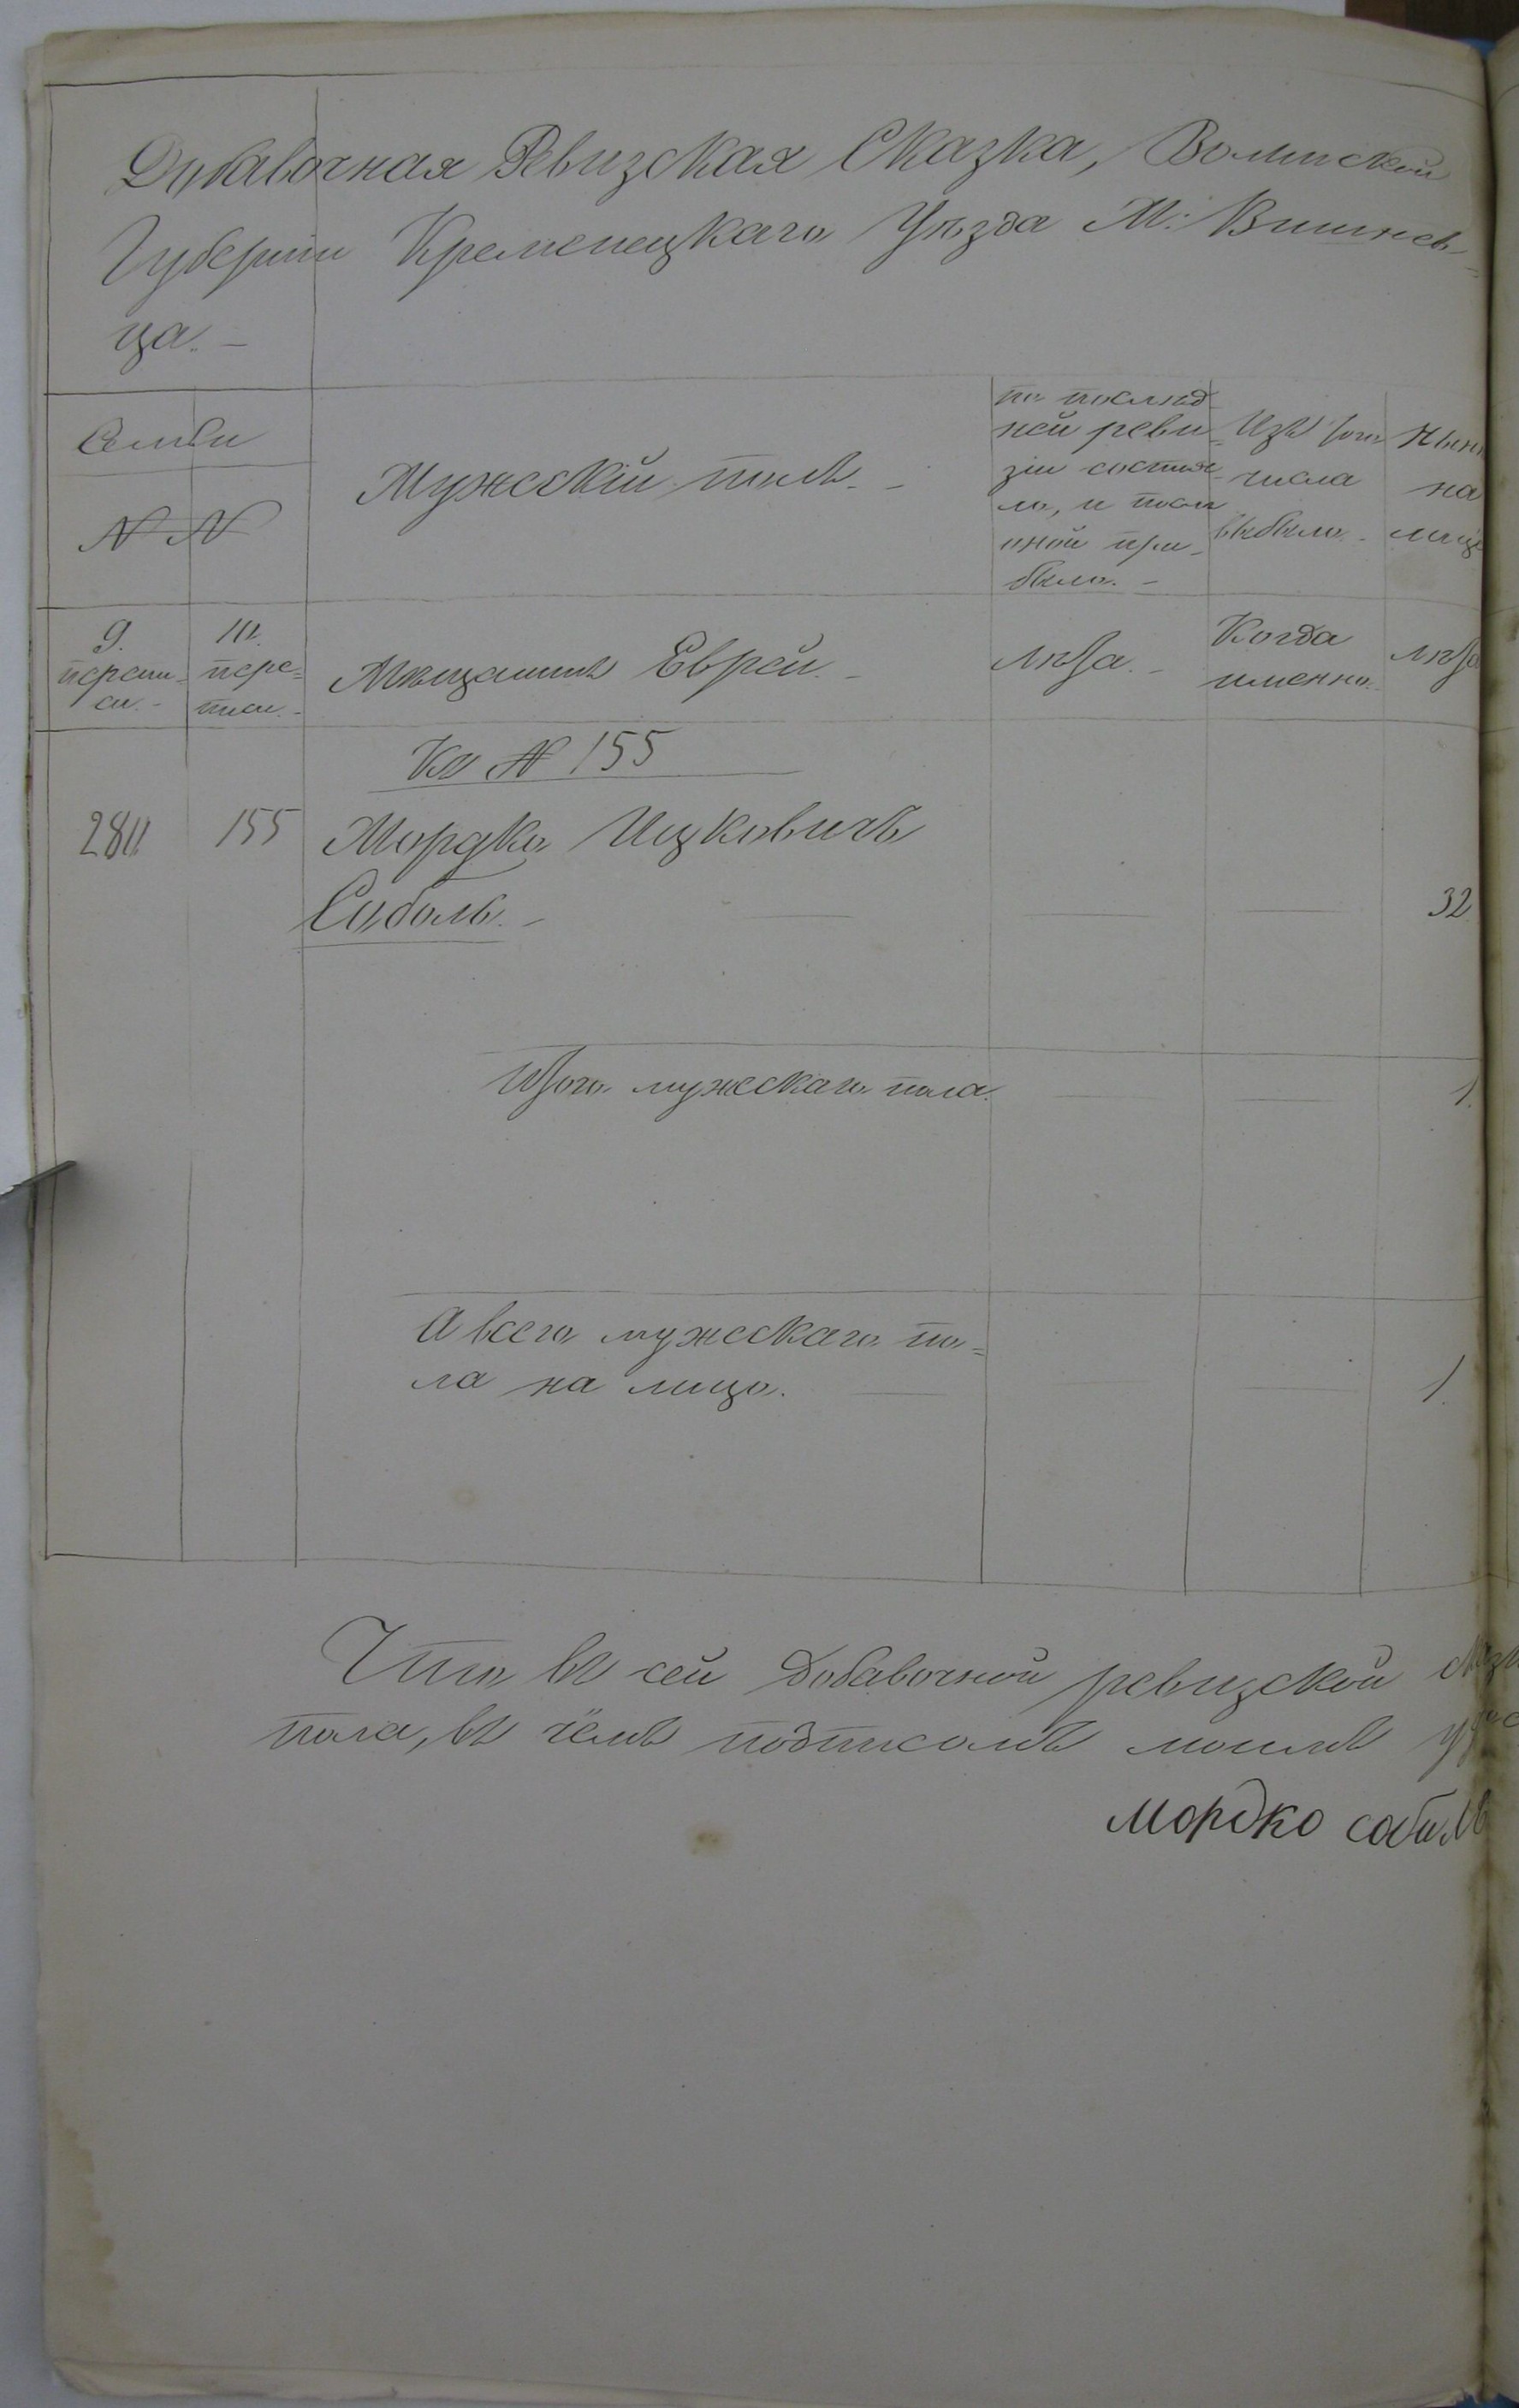 Добавочная Ревизская Сказка, Волынской
Губернiи Кременецкаго Уѣзда М: Вишнев-
ца. -
Семьи
N N
Мужескiй полъ. -
по послѣд-
ней реви-
зiи состоя-
ло, и после
оной при-
было. -
Изъ того
числа
выбыло. -
Нынѣ
на
лице
9.
переписи. -
10.
пере-
писи. -
Мѣщанинъ Еврей. -
лѣта. -
Когда
именно.
лѣта
Къ N 155
280 155 Мордко Ицковичъ
Соболь. - 32
Итого мужескаго пола. 1.
А всего мужескаго по-
ла на лицо. 1.
Что въ сей добавочной ревизской
пола, въ чемъ подписомъ моимъ
мордко соболь